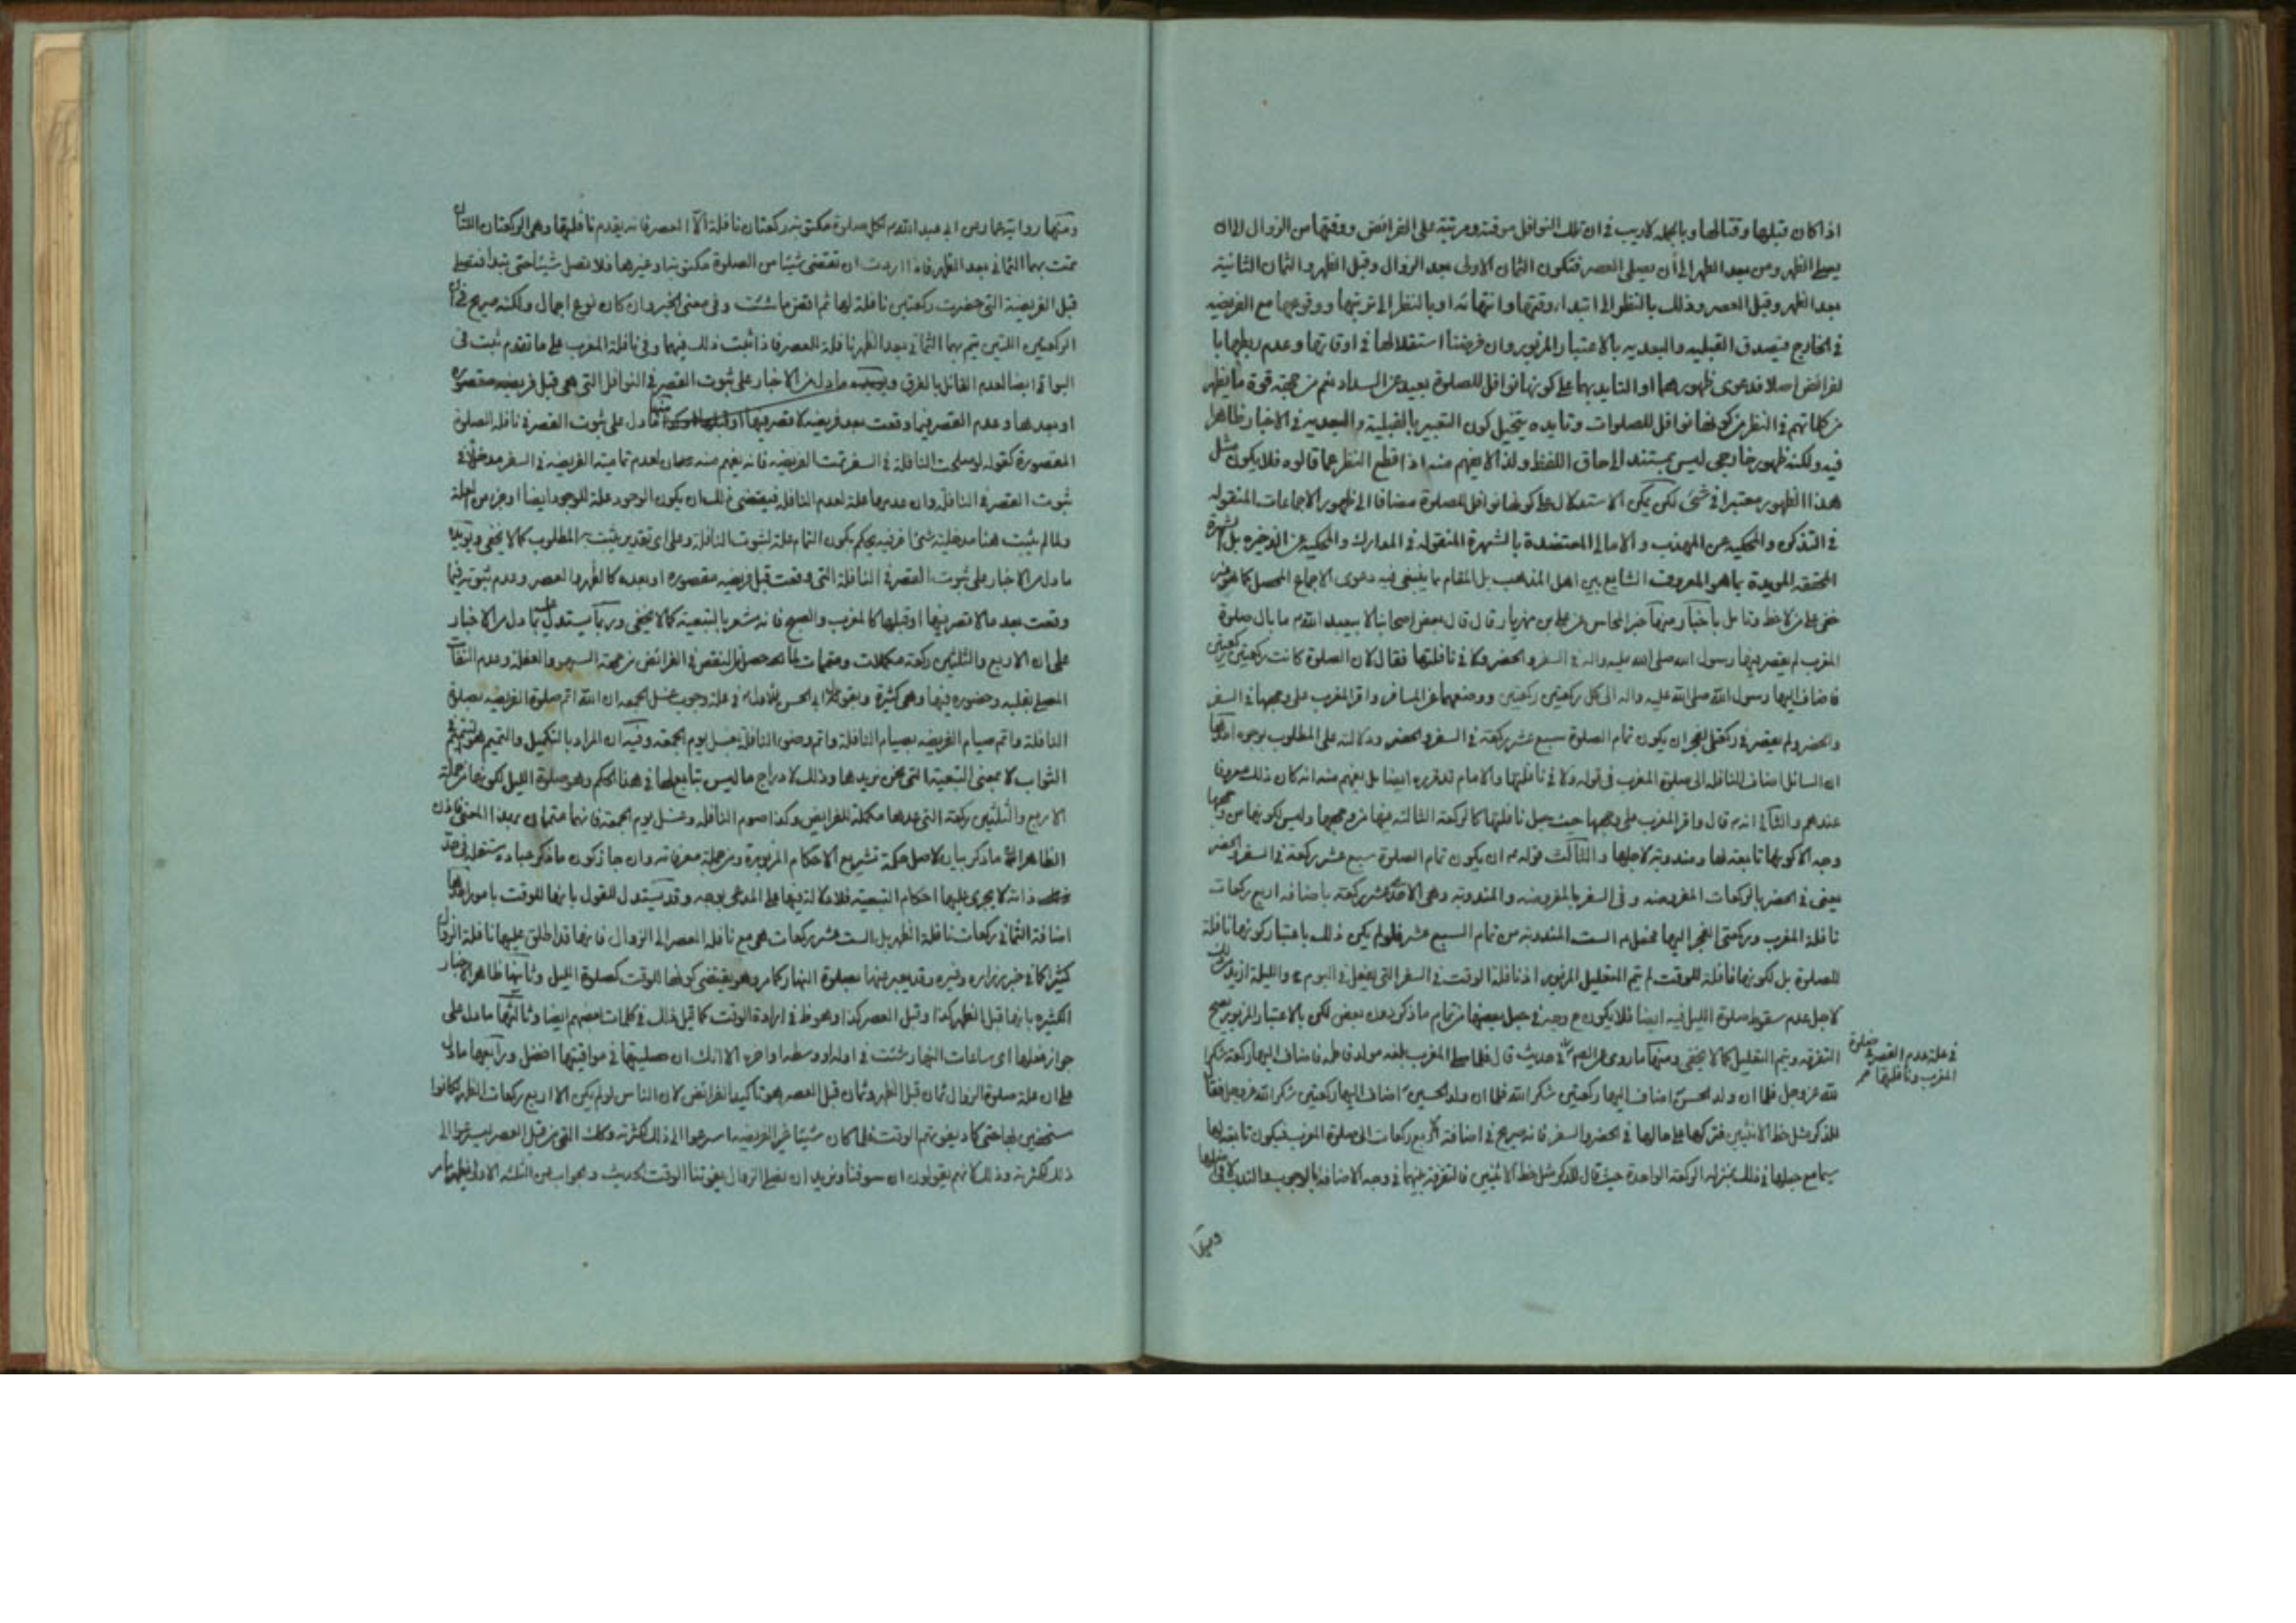 اذا كان قبلها وقتا لها وبالجمله لاريب فى ان تلك النوافل موقته ومرتبة على الفرائض ووقتها من الزوال الى ان
يصلى الظهر ومن بعد الظهر الى أن يصلى العصر فتكون الثمان الاولى بعد الزوال وقبل الظهر والثمان الثانية
بعد الظهر وقبل العصر وذلك بالنظر الى ابتداء وقتها وانتهائه او بالنظر الى ترتبها ووقوعها مع الفريضه
فى الخارج فيصدق القبليه والبعديه بالاعتبار المزبور وان فرضنا استقلالها فى اوقاتها وعدم ربطها با
لفرائض اصلا فدعوى ظهورهما او التايد بهما على كونها نوافل للصلوة بعيد عن السداد نعم من جهة قوة ما يظهر
من كلماتهم فى النظر من كونها نوافل للصلوات وتايده يتخيل كون التعبير بالقبلية والبعديه فى الاخبار ظاهرا
فيه ولكنه ظهور خارجى ليس بمستند الى حاق اللفظ ولذا لا يفهم منه اذا قطع النظر عما قالوه فلا يكون مثل
هذا الظهور معتبرا فى شئ لكن يمكن الاستدلال على كونها نوافل للصلوة مضافا الى ظهور الاجماعات المنقوله
فى التذكره والمحكيه عن المهذب والامالى المعتضدة بالشهرة المنقوله فى المدارك والمحكيه عن الذخيره بل الشهرة
المحققه المويدة بما هو المعروف الشايع بين اهل المذهب بل المقام مما ينبغى فيه دعوى الاجماع المحصل كما هو غير
خفى على من لاحظ وتامل باخبار منها خبر النحاس عن على بن مهزيار قال قال بعض اصحابنا لابيعبد الله ع ما بال صلوة
المغرب لم يقصر فيها رسول الله صلى الله عليه واله فى السفر والحضر ولا فى نافلتها فقال لان الصلوة كانت ركعتين ركعتين
فاضاف اليها رسول الله صلى الله عليه واله الى كل ركعتين ركعتين ووضعهما عن المسافر واقر المغرب على وجهها فى السفر
والحضر ولم يقصر فى ركعتى الفجر ان يكون تمام الصلوة سبع عشر ركعة فى السفر والحضر ودلالته على المطلوب بوجوه احدها
ان السائل اضاف النافله الى صلوة المغرب فى قوله ولا فى نافلتها والامام قد قرره ايضا بل يفهم منه انه كان ذلك معروفا
عندهم والثانى انه ع قال واقر المغرب على وجهها حيث جعل نافلتها كالركعة الثالثه منها من وجهها وليس لكونها من وجهها
وجه الا كونها تابعة لها ومندوبة لاجلها والثالث قوله ع ان يكون تمام الصلوة سبع عشر ركعة فى السفر والحضر
يعنى فى الحضر بالركعات المفروضه وفى السفر بالمفروضه والمندوبه وهى الاحد عشر ركعة باضافه اربع ركعات
نافلة المغرب وركعتى الفجر اليها فجعل ع الست المندوبه من تمام السبع عشر فلو لم يكن ذلك باعتبار كونها نافلة
للصلوة بل لكونها نافلة للوقت لم يتم التعليل المزبور اذ نافلة الوقت فى السفر التى يفعل فى اليوم والليلة ازيد من ذلك
لاجل عدم سقوط صلوة الليل فيه ايضا فلا يكون ح وجه فى جعل بعضها من تمام ما ذكر دون بعض لكن بالاعتبار المزبور يصح
التفرقه ويتم التعليل كما لا يخفى ومنها ما روى عن الصم ع فى حديث قال فلما صلى المغرب بلغه مولد فاطمه فاضاف اليها ركعة شكرا
لله عز وجل فلما ان ولد الحسن ع اضاف اليها ركعتين شكر الله فلما ان ولد الحسين ع اضاف اليها ركعتين شكر الله عز وجل فقال
للذكر مثل حظ الانثيين فتركها على حالها فى الحضر والسفر فانه صريح فى اضافة الاربع ركعات الى صلوة المغرب فيكون تابعة لها
سيما مع جعلها فى ذلك بمنزله الركعة الواحدة حيث قال للذكر مثل حظ الانثيين فالتفرقة بينهما فى وجه الاضافة بالوجوب والندب
فى علة عدم القصر فى صلوة
المغرب ونافلتها
ومنها
ومنها رواية عمار عن ابى عبد الله ع لكل صلوة مكتوبه ركعتان نافلة الا العصر فانه يقدم نافلتها وهى الركعتان اللتان
تمت بهما الثمانى بعد الظهر فاذا اردت ان تقضى شيئا من الصلوة مكتوبة او غيرها فلا تصل شيئا حتى تبدا فتصلى
قبل الفريضة التى حضرت ركعتين نافلة لها ثم اقض ما شئت وفى معنى الخبر وان كان نوع اجمال ولكنه صريح فى ان
الركعتين اللتين يتم بهما الثمانى بعد الظهر نافلة للعصر فاذا ثبت ذلك فيهما وفى نافلة المغرب على ما تقدم ثبت فى
البواقى ايضا لعدم القائل بالفرق ويؤيده ما دل من الاخبار على ثبوت القصر فى النوافل التى هى قبل فريضه مقصوره
او بعدها وعدم القصر فيما وقعت بعد فريضه لا قصر فيها او قبلها ما دل على ثبوت القصر فى نافله الصلوة
المقصورة كقوله لو صلحت النافلة فى السفر تمت الفريضه فانه يفهم منه ان لعدم تمامية الفريضه فى السفر مدخلا فى
ثبوت القصر فى النافله وان عدمها علة لعدم النافله فيقتضى ذلك ان يكون الوجود علة للوجود ايضا او جزء من العلة
ولما لم يثبت هنا مدخلية شئ اخر فيه يحكم بكون التمام علة لثبوت النافلة وعلى اى تقدير يثبت به المطلوب كما لا يخفى ويؤيده
ما دل من الاخبار على ثبوت القصر فى النافلة التى وقعت قبل فريضه مقصوره او بعده كالظهر والعصر وعدم ثبوته فيما
وقعت بعد ما لا قصر فيها او قبلها كالمغرب والصبح فانه مشعر بالتبعية كما لا يخفى وربما يستدل عليه بما دل من الاخبار
على ان الاربع والثلثين ركعة مكملات ومتممات لما حصل من النقص فى الفرائض من جهة السهو والغفلة وعدم التفات
المصلى بقلبه وحضوره فيها وهى كثيرة وبقول ابى الحسن الاول ع فى علة وجوب غسل الجمعه ان الله اتم صلوة الفريضه بصلوة
النافلة واتم صيام الفريضه بصيام النافلة واتم وضوء النافلة بغسل يوم الجمعه وفيه ان المراد بالتكميل والتتميم هو التتميم فى
الثواب لا بمعنى التبعية التى نحن نريدها وذلك لادراج ما ليس بتابع لها فى هذا الحكم وهو صلوة الليل لكونها من جملة
الاربع والثلثين ركعة التى عدها مكملة للفرايض وكذا صوم النافله وغسل يوم الجمعة فانهما متممان بهذا المعنى فاذن
الظاهر ان ما ذكر بيان لاصل حكمة تشريع الاحكام المزبورة ومن جملة معرفاته وان جاز كون ما ذكر عبادة مستقله فى حد
ذاته لا يجرى عليها احكام التبعية فلا دلالة فيها على المدعى بوجه وقد يستدل للقول بانها للوقت بامور احدها
اضافة الثمانى ركعات نافلة الظهر بل الست عشر ركعات هى مع نافلة العصر الى الزوال فانها قد اطلق عليها نافلة الزوال
كثيرا كما فى خبر زراره وغيره وقد يعبر عنها بصلوة النهار كما مر وهو يقتضى كونها للوقت كصلوة الليل وثانيها ظاهر الاخبار
الكثيره بانها قبل الظهر كذا وقبل العصر كذا وهو ظ فى ارادة الوقت كما قيل ذلك فى كلمات بعضهم ايضا وثالثها ما دل على
جواز فعلها اى ساعات النهار شئت فى اوله او وسطه او اخره الا انك ان صليتها فى مواقيتها افضل ورابعها ما دل
على ان علة صلوة الزوال ثمان قبل الظهر وثمان قبل العصر هو تاكيد الفرائض لان الناس لو لم يكن الا اربع ركعات الظهر لكانوا
مستخفين بها حتى كاد يفوتهم الوقت فلما كان شيئا غير الفريضه اسرعوا الى ذلك لكثرته وكذلك التى من قبل العصر ليسرعوا الى
ذلك لكثرته وذلك لانهم يقولون ان سوفنا ونريد ان نصلى الزوال يفوتنا الوقت الحديث والجواب عن الثلثه الاول يظهر مما مر